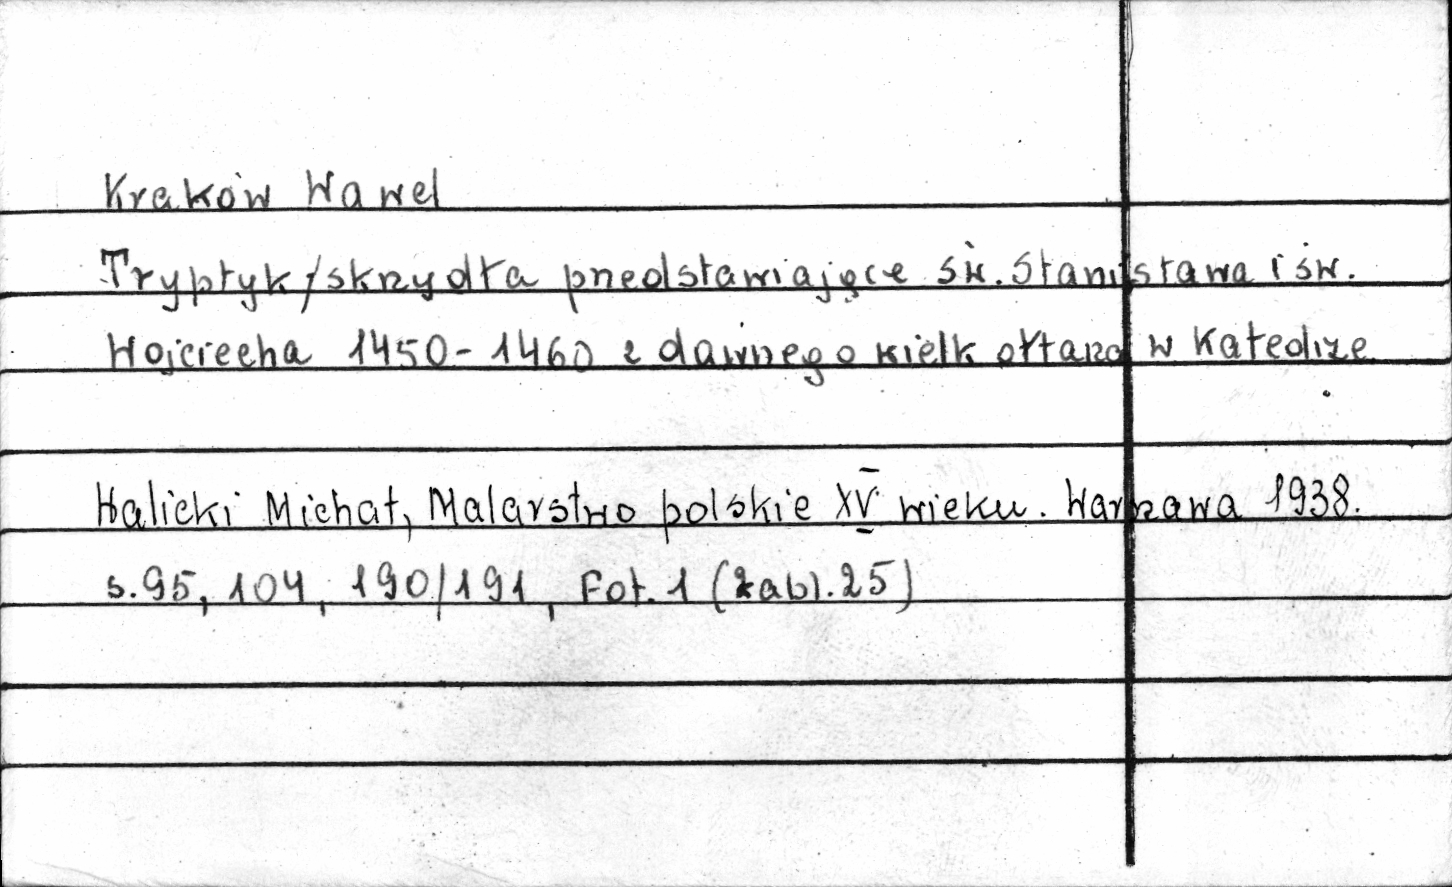 Kraków Wawel
Tryptyk /skrzydła przedstawiające św. Stanisława i św.
Wojciecha 1450-1460 z dawnego wielk ołtarza w Katedrze
Walicki Michał, Malarstwo polskie XV wieku. Warszawa 1938.
s.95, 104, 190/191, Fot. 1 (tabl. 25)